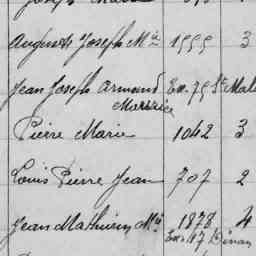 Auguste Joseph Mie 1999 3
Jean Joseph Armand Ex. 79 St Malo
Maurice
Pierre Marie 1042 3
Louis Pierre Jean 707 2
Jean Mathurin Mie 1878 4
Ex. 197 Dinan